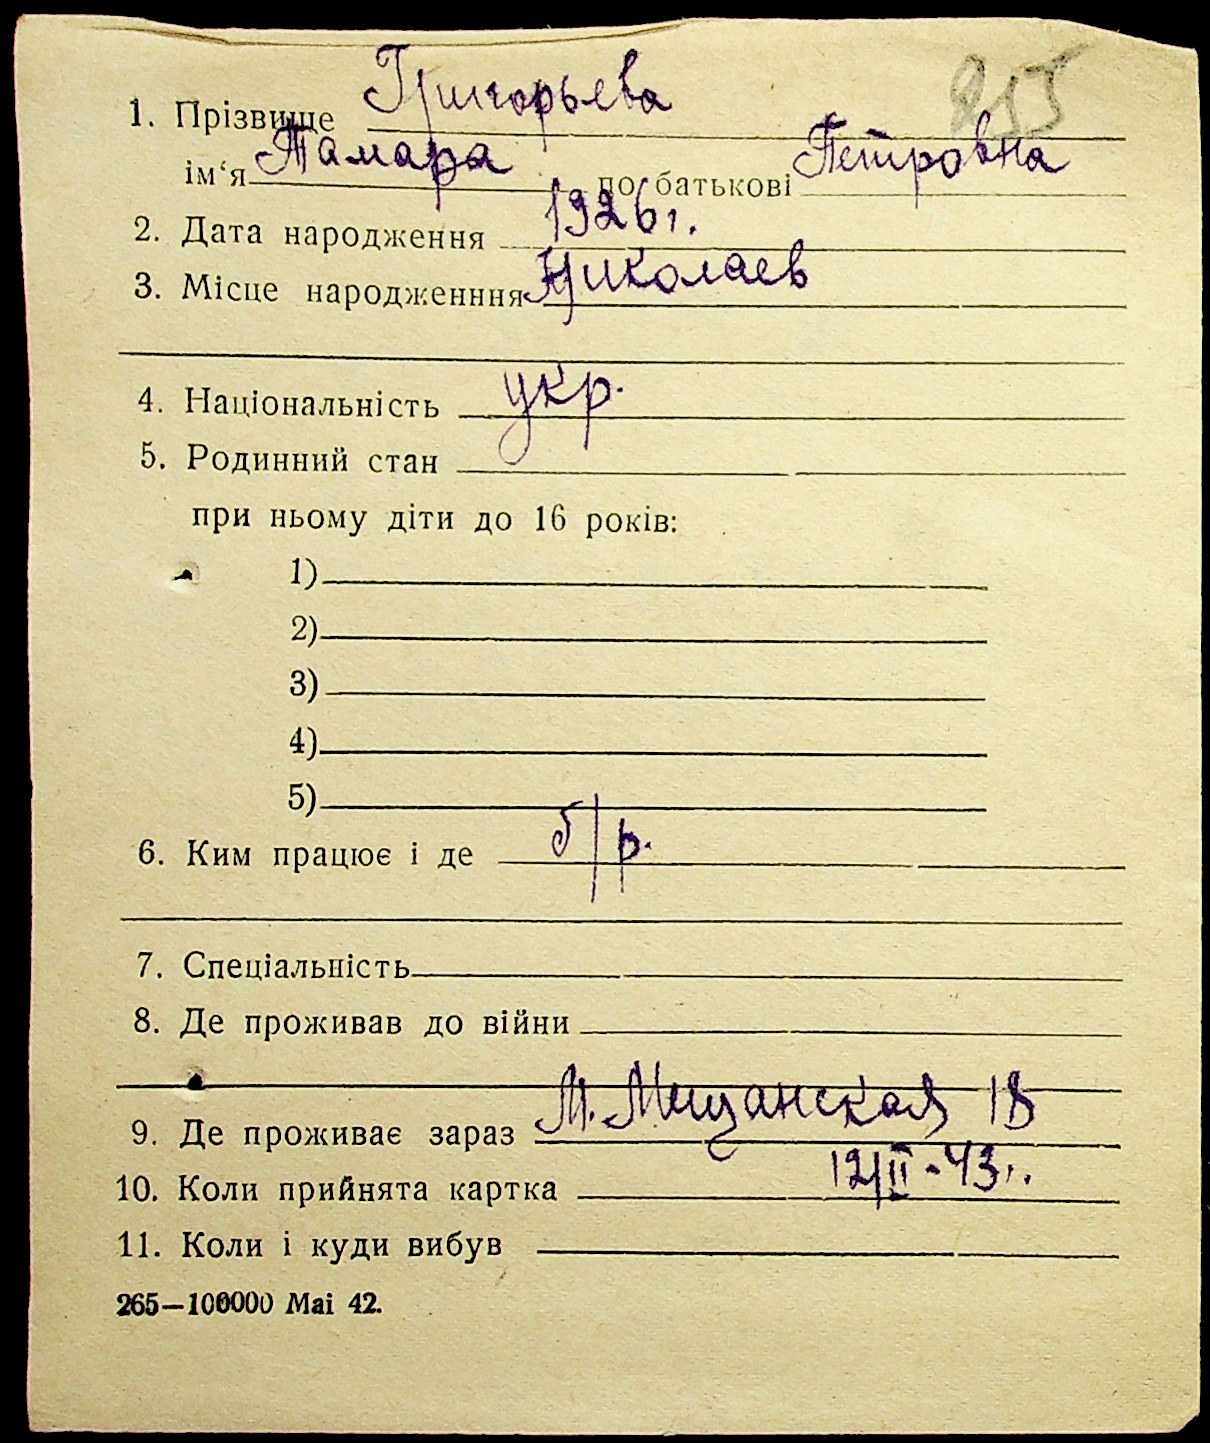 255
1. Прізвище Григорьева
ім‘я Тамара по батькові Петровна
2. Дата народження 1926 г.
3. Місце народженння Николаев
4. Національність укр.
5. Родинний стан
при ньому діти до 16 років:
1)
2)
3)
4)
5)
6. Ким працює і де б/р.
7. Спеціальність
8. Де проживав до війни
9. Де проживає зараз М. Мещанская 18
10. Коли прийнята картка 12/II - 43 г.
11. Коли і куди вибув
265—100000 Mai 42.